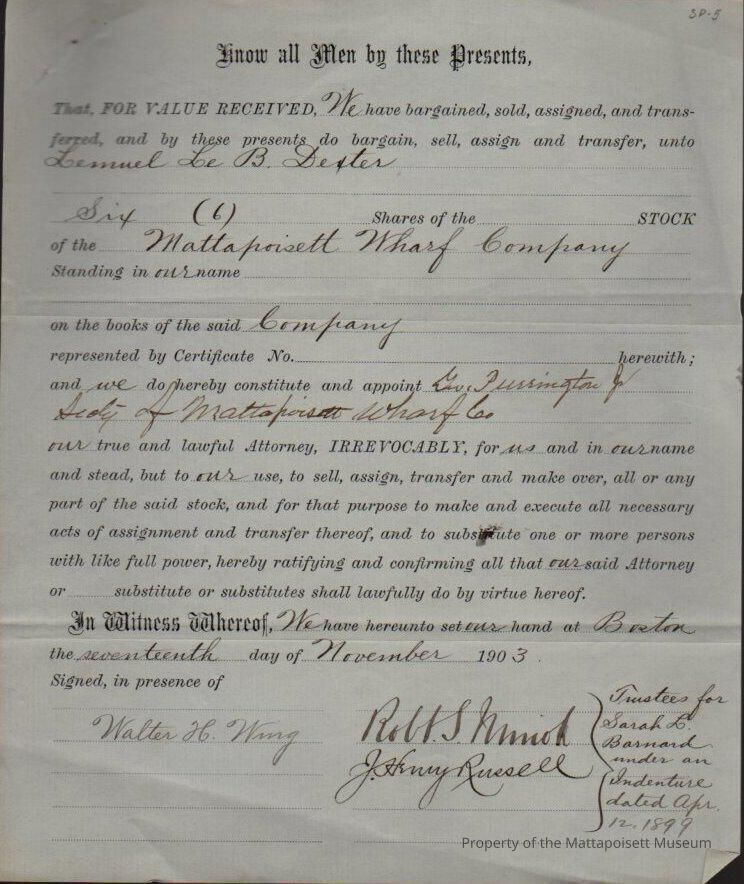 SP-5
Know all Men by these Presents,
That, FOR VALUE RECEIVED, We have bargained, sold, assigned, and trans-
ferred, and by these presents do bargain, sell, assign and transfer, unto
Lemuel Le B. Dexter
Six (6) Shares of the STOCK
of the Mattapoisett Wharf Company
Standing in our name
on the books of the said Company
represented by Certificate No. herewith;
and we do hereby constitute and appoint Geo. Purrington Jr
Secty of Mattapoisett Wharf Co
our true and lawful Attorney, IRREVOCABLY, for us and in our name
and stead, but to our use, to sell, assign, transfer and make over, all or any
part of the said stock, and for that purpose to make and execute all necessary
acts of assignment and transfer thereof, and to substitute one or more persons
with like full power, hereby ratifying and confirming all that our said Attorney
or substitute or substitutes shall lawfully do by virtue hereof.
In Witness Whereof, We have hereunto set our hand at Boston
the seventeenth day of November 1903.
Signed, in presence of
Walter H. Wing
Robt. S. Minot
J. Henry Russell
Trustees for
Sarah L.
Barnard
under an
Indenture
dated Apr.
12, 1899
Property of the Mattapoisett Museum